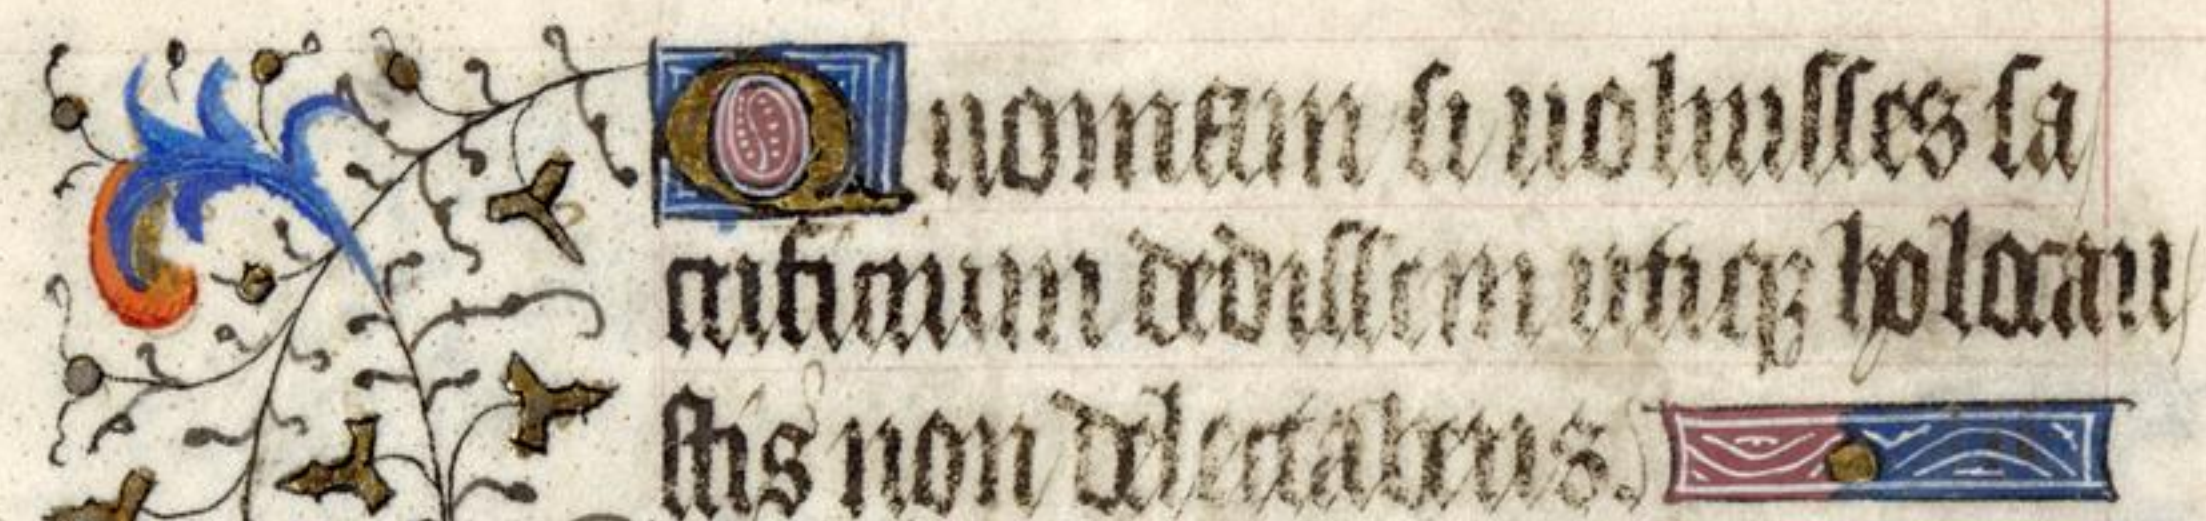 Quoniam si uoluisses sa
crificium dedissem utiqꝫ holocau
stis non delectaberis.